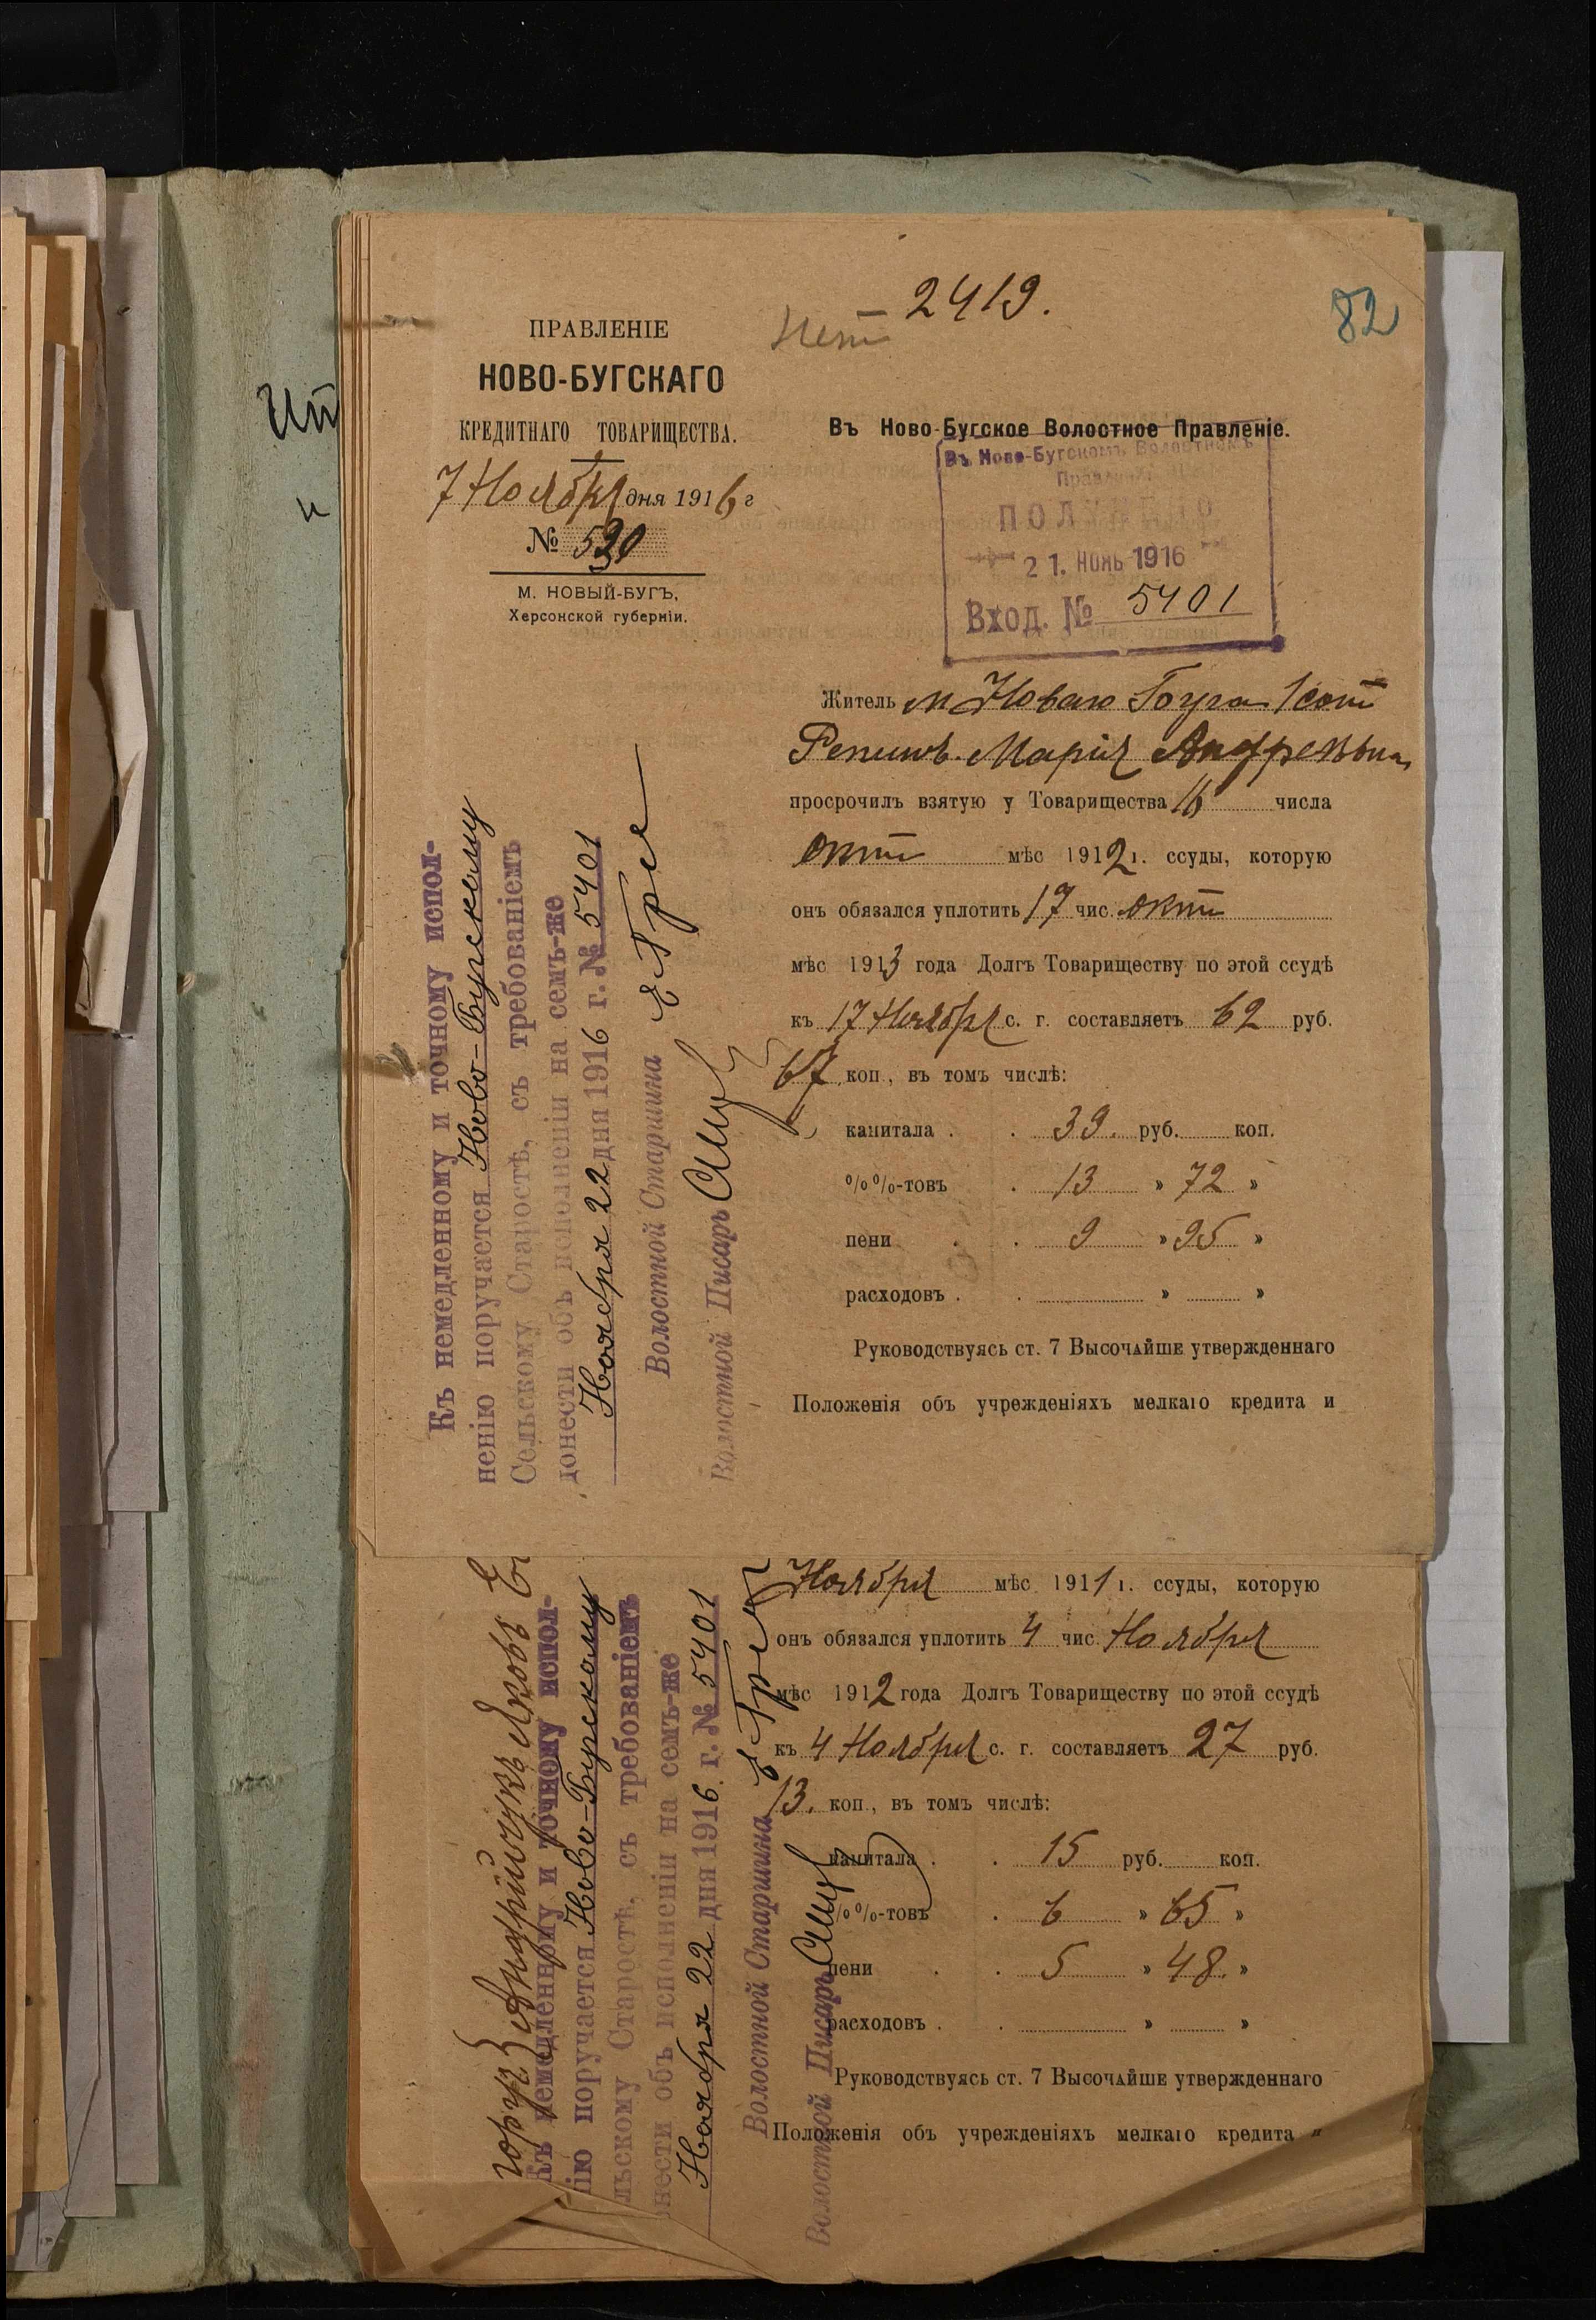 2419.
82
Нет
ПРАВЛЕНІЕ
НОВО-БУГСКАГО
КРЕДИТНАГО ТОВАРИЩЕСТВА.
7 Ноября дня 1916 г
№ 530
М. НОВЫЙ-БУГЪ,
Херсонской губерніи.
Въ Ново-Бугское Волостное Правленіе.
Въ Ново-Бугскомъ Волостномъ
Правленіи
ПОЛУЧЕНО
21. НОЯБ 1916
Вход. № 5401
Житель м Новаго Буга 1 сот
Репинъ Марія Андреевна
просрочилъ взятую у Товарищества 16 числа
окт мѣс 1912 г. ссуды, которую
онъ обязался уплотить 17 чис. окт
мѣс 1913 года Долгъ Товариществу по этой ссудѣ
къ 17 Ноября с. г. составляетъ 62 руб.
67 коп., въ томъ числѣ:
капитала . . 39. руб. коп.
%%-товъ . 13 » 72 »
пени . . 9 » 95 »
расходовъ . . » »
Руководствуясь ст. 7 Высочайше утвержденнаго
Положенія объ учрежденіяхъ мелкаго кредита и
Къ немедленному и точному испол-
ненію поручается Ново-Бугскому
Сельскому Старостѣ, съ требованіемъ
донести объ исполненіи на семъ-же
Ноября 22 дня 1916 г. № 5401
Волостной Старшина
Волостной Писарь
Ноября мѣс 1911 г. ссуды, которую
онъ обязался уплотить 4 чис. Ноября
мѣс 1912 года Долгъ Товариществу по этой ссудѣ
къ 4 Ноября с. г. составляетъ 27 руб.
13. коп., въ томъ числѣ:
капитала . . 15 руб. коп.
%%-товъ . 6 » 65 »
пени . . 5 » 48. »
расходовъ . . » »
Руководствуясь ст. 7 Высочайше утвержденнаго
Положенія объ учрежденіяхъ мелкаго кредита и
Андрійчукъ Яковъ
Къ немедленному и точному испол-
нію поручается Ново-Бугскому
льскому Старостѣ, съ требованіемъ
нести объ исполненіи на семъ-же
Ноября 22 дня 1916 г. № 5401
Волостной Старшина
Волостной Писарь